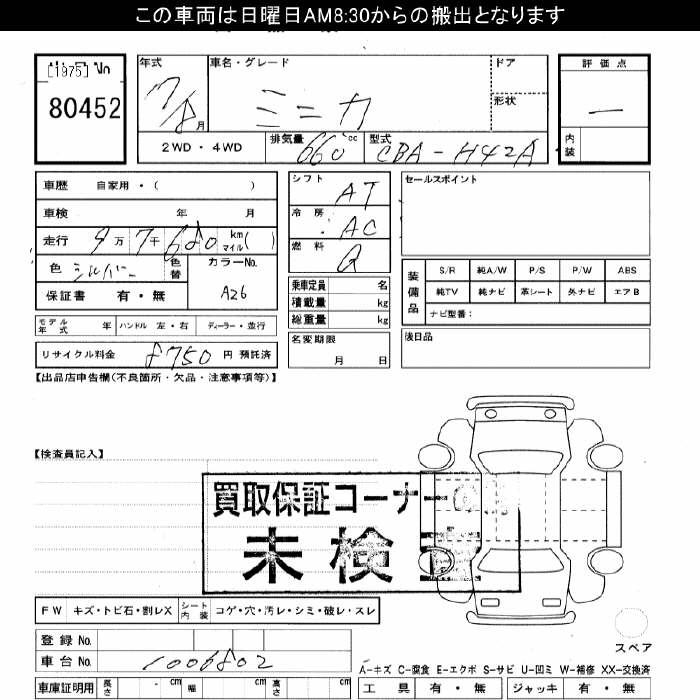 この車両は日曜日AM8:30からの搬出となります
[1975] No
80452
年式 車名・グレード ドア 評価点
17/8 月 ミニカ 形状 ー
2WD・4WD 排気量 660 cc 型式 CBA-H42A 内装
車歴 自家用・( )
車検 年 月
走行 9万 7千 680 km マイル ( )
色 シルバー 色替 カラーNo.
保証書 有・無 A26
モデル年式 年 ハンドル 左・右 ディーラー・並行
リサイクル料金 8750 円 預託済
シフト AT
冷房 AC
燃料 G
乗車定員 名
積載量 kg
総重量 kg
名変期限
月 日
セールスポイント
装備品 S/R 純A/W P/S P/W ABS
純TV 純ナビ 革シート 外ナビ エアB
ナビ型番:
後日品
【出品店申告欄(不良箇所・欠品・注意事項等)】
【検査員記入】
買取保証コーナー
未検
FW キズ・トビ石・割レX シート内装 コゲ・穴・汚レ・シミ・破レ・スレ
登録No.
車台No. 1006802
スペア
A-キズ C-腐食 E-エクボ S-サビ U-凹ミ W-補修 XX-交換済
車庫証明用 長さ cm 幅 cm 高さ cm 工具 有・無 ジャッキ 有・無